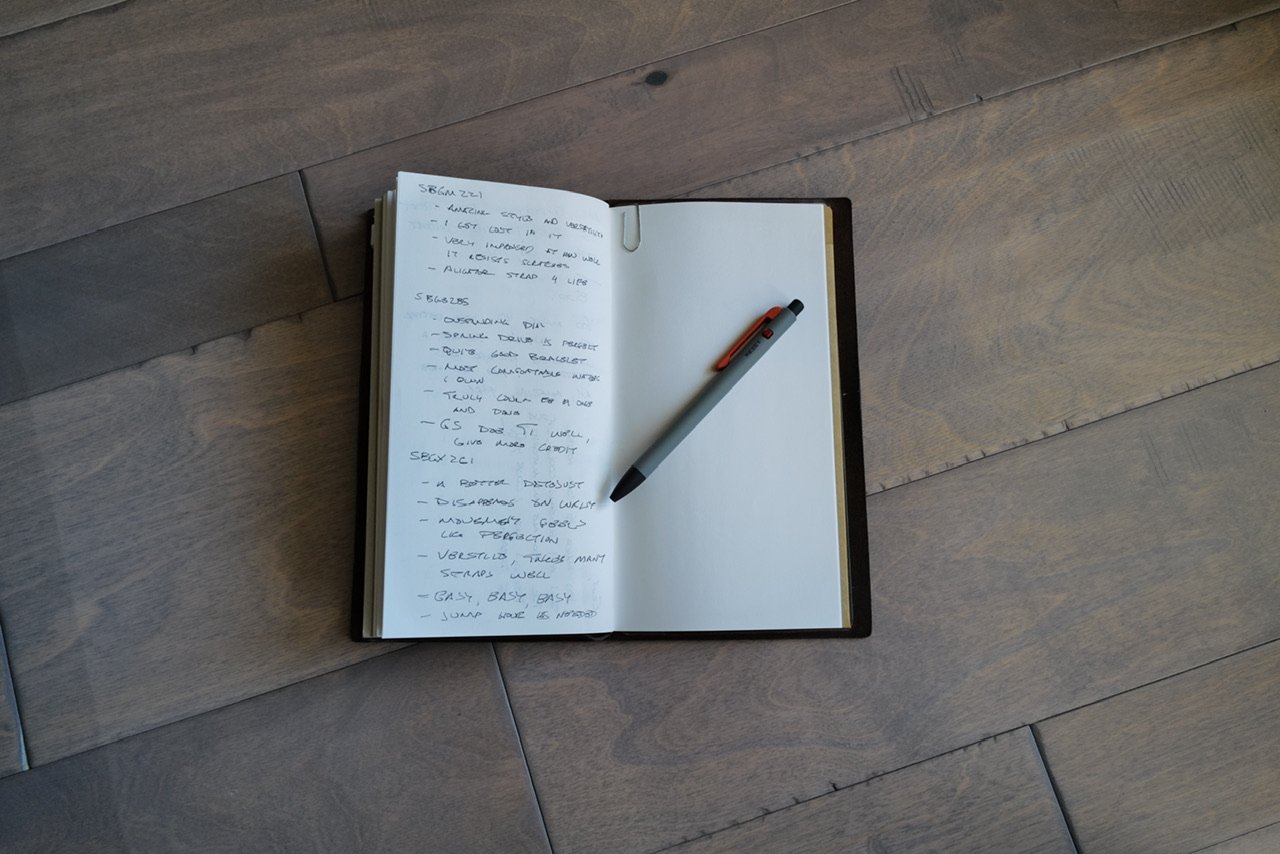 SBGM221
- AMAZING STYLE AND VERSATILITY
- I GET LOST IN IT
- VERY IMPRESSED AT HOW WELL
IT RESISTS SCRATCHES
- ALIGATOR STRAP 4 LIFE
SBGE285
- OUTSTANDING DIAL
- SPRING DRIVE IS PERFECT
- QUITE GOOD BRACELET
- MOST COMFORTABLE WATCH
I OWN
- TRULY COULD BE A ONE
AND DONE
- GS DOES TI WELL,
GIVE MORE CREDIT
SBGX261
- A BETTER DATEJUST
- DISAPPEARS ON WRIST
- MOVEMENT FEELS
LIKE PERFECTION
- VERSTILE, TAKES MANY
STRAPS WELL
- EASY, EASY, EASY
- JUMP HOUR IS NEEDED